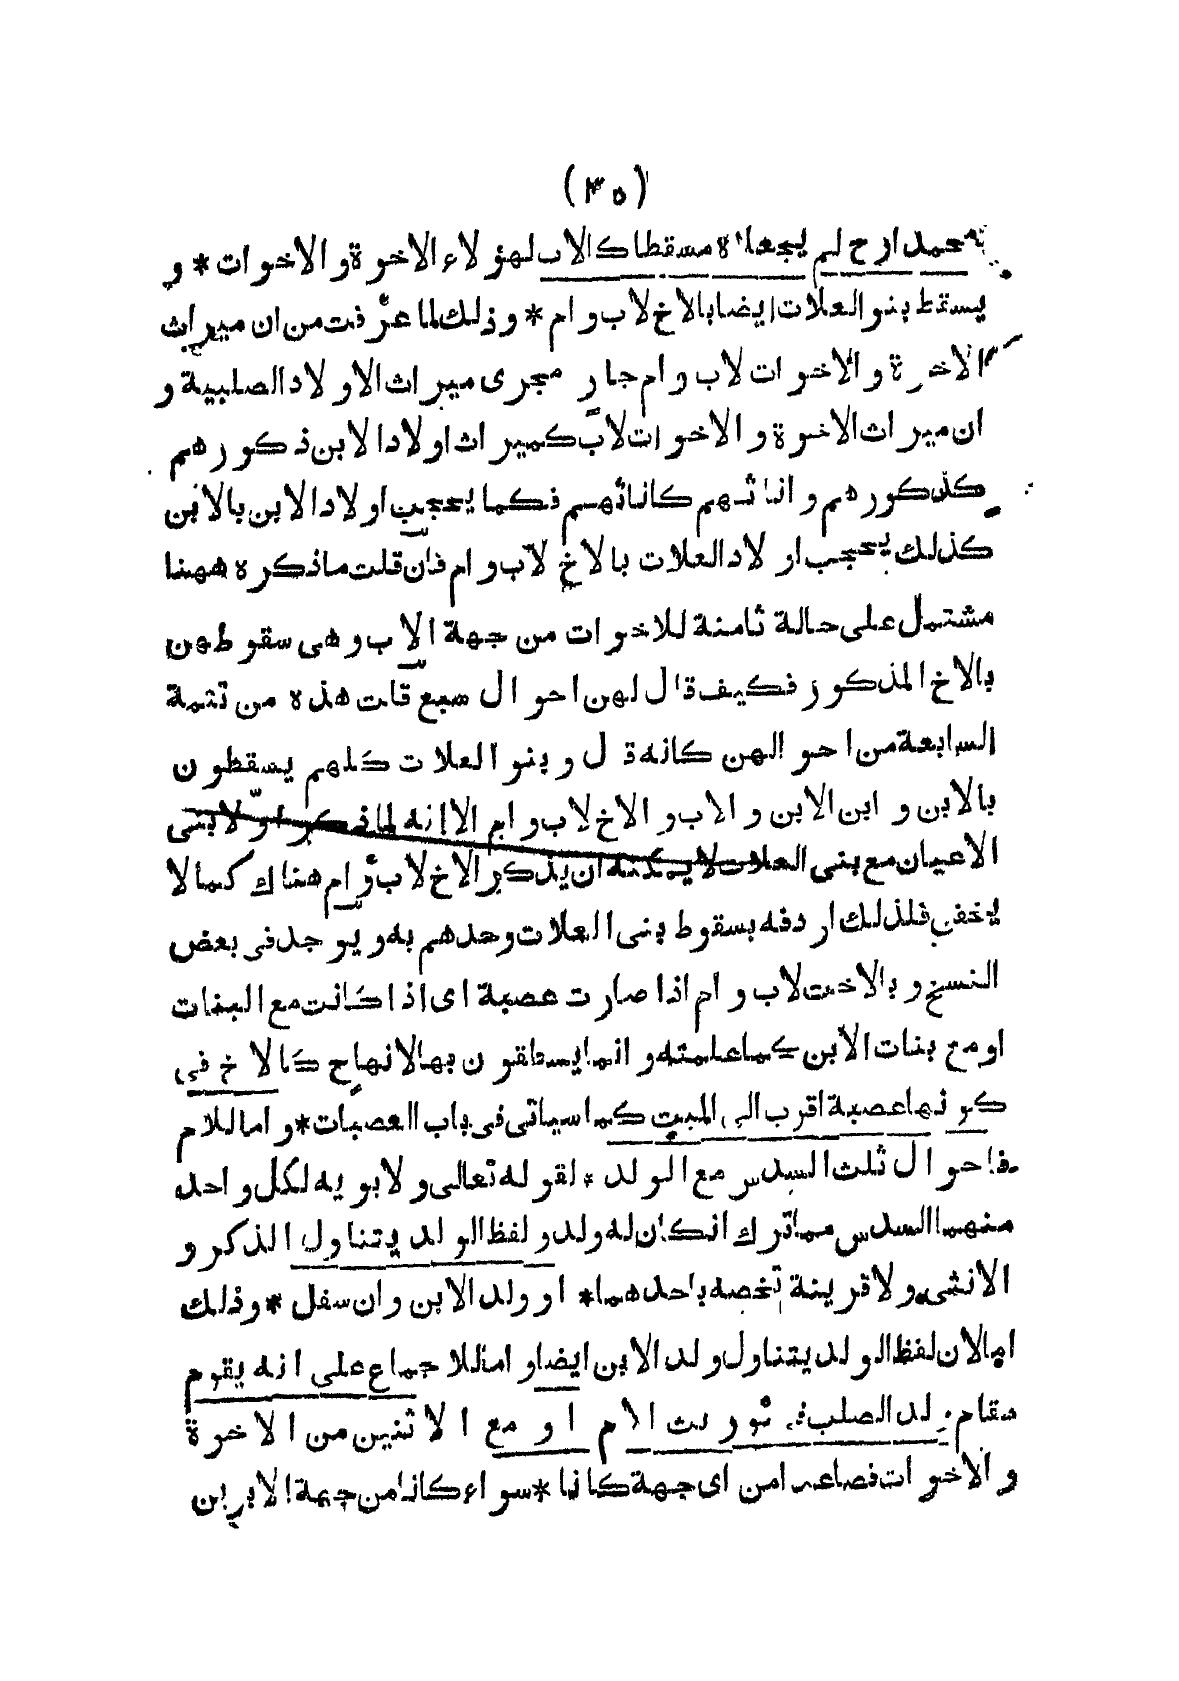 (٣٥)
محمد ارح لم يجعلاه مسقطا كالاب لهؤلاء الاخوة والاخوات * و
يسقط بنو العلات ايضا بالاخ لاب وام * وذلك لما عرفت من ان ميراث
الاخوة والاخوات لاب وام جار مجرى ميراث الاولاد الصلبية و
ان ميراث الاخوة والاخوات لاب كميراث اولاد الابن ذكورهم
كذكورهم واناثهم كاناثهم فكما يحجب اولاد الابن بالابن
كذلك يحجب اولاد العلات بالاخ لاب وام فان قلت ماذكره ههنا
مشتمل على حالة ثامنة للاخوات من جهة الاب وهى سقوطهن
بالاخ المذكور فكيف قال لهن احوال سبع قلت هذه من تتمة
السابعة من احوالهن كانه قال وبنو العلات كلهم يسقطون
بالابن وابن الابن والاب والاخ لاب وام الا انه لما ذكر اولا بنى
الاعيان مع بنى العلات لا يمكنه ان يذكر الاخ لاب وام هناك كما لا
يخفى فلذلك اردفه بسقوط بنى العلات وحدهم به ويوجد فى بعض
النسخ وبالاخت لاب وام اذا صارت عصبة اى اذا كانت مع البنات
او مع بنات الابن كما علمته وانما يسقطون بها لانها ح كالاخ فى
كونها عصبة اقرب الى الميت كما سياتى فى باب العصبات * واما للام
فاحوال ثلث السدس مع الولد * لقوله تعالى ولابويه لكل واحد
منهما السدس مما ترك ان كان له ولد ولفظ الولد يتناول الذكر و
الانثى ولا قرينة تخصه باحدهما * او ولد الابن وان سفل * وذلك
اما لان لفظ الولد يتناول ولد الابن ايضا واما للاجماع على انه يقوم
مقام ولد الصلب فى توريث الام او مع الاثنين من الاخوة
والاخوات فصاعدا من اى جهة كانا * سواء كانا من جهة الابوين